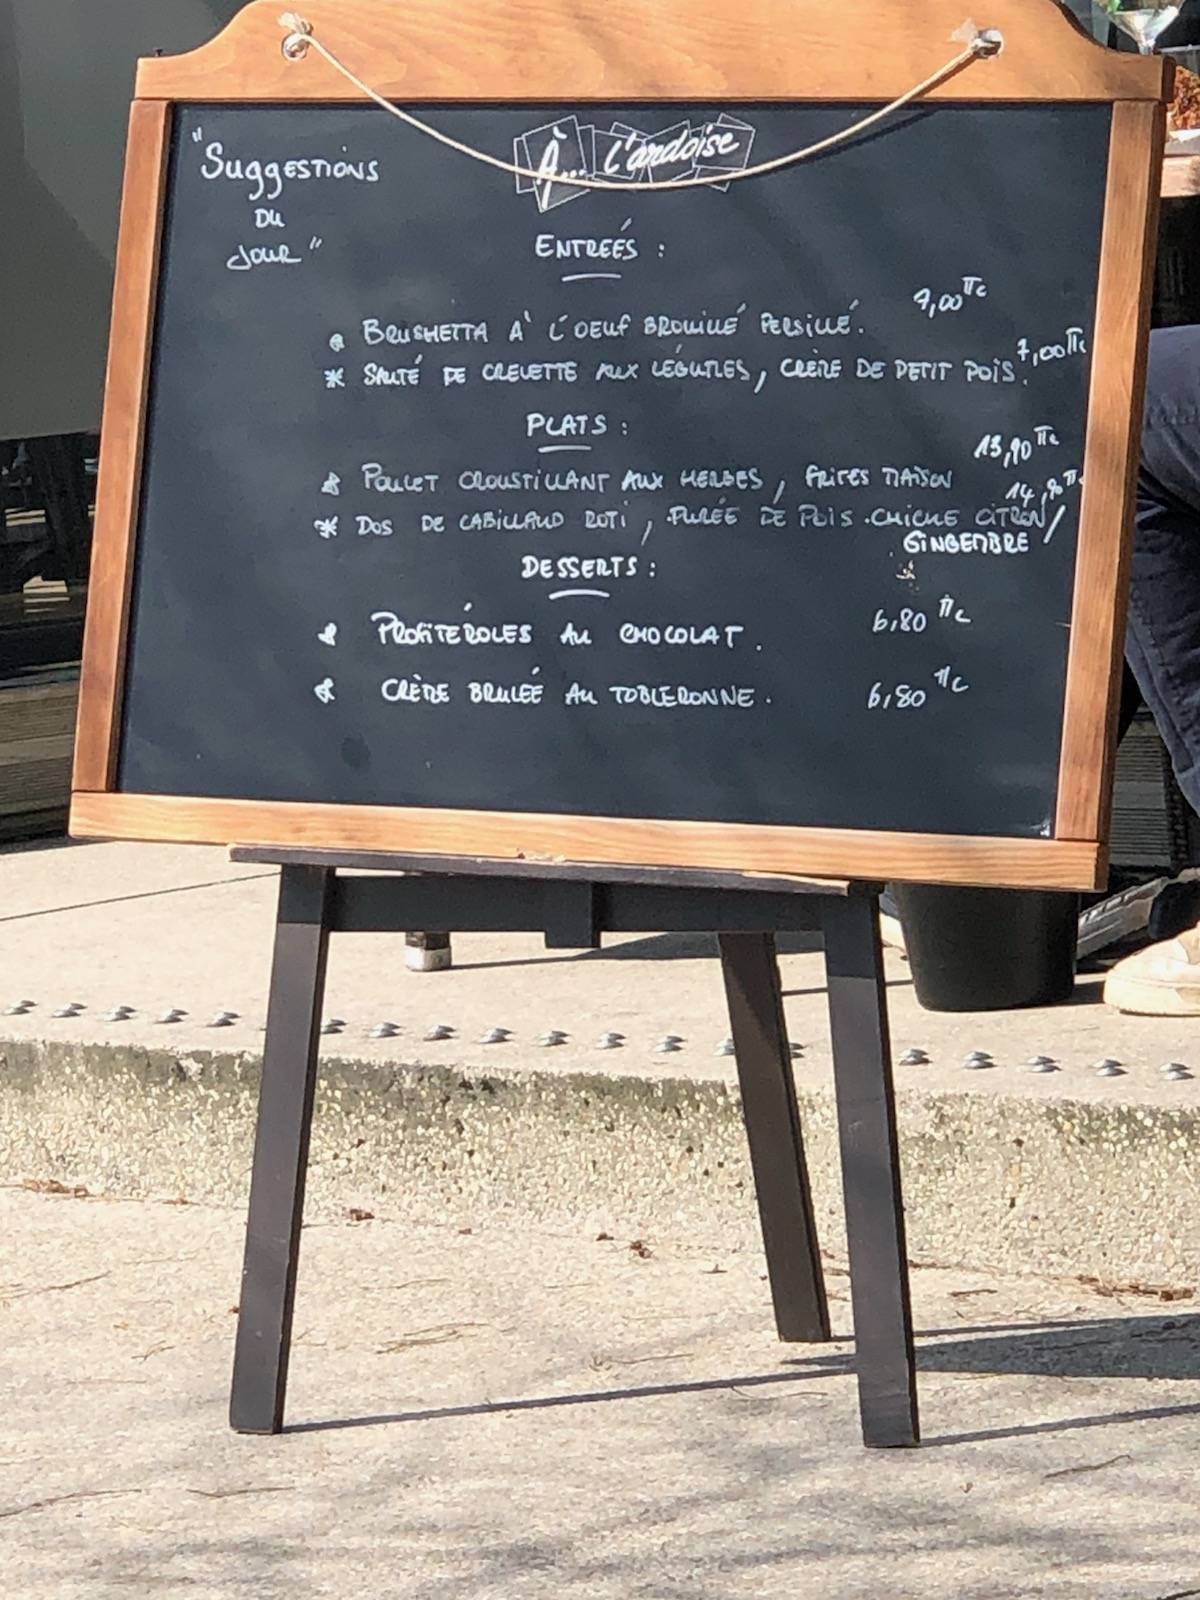 À... L'ardoise
"SUGGESTIONS
DU
JOUR"
ENTREÉS :
BRUSHETTA A' L'OEUF BROUILLÉ PERSILLÉ. 7,00 TTC
SAUTÉ DE CREVETTE AUX LÉGUMES, CRÈME DE PETIT POIS. 7,00 TTC
PLATS :
POULET CROUSTILLANT AUX HERBES, FRITES MAISON 13,90 TTC
DOS DE CABILLAUD ROTI, PURÉE DE POIS CHICHE CITRON/ 14,90 TTC
GINGEMBRE
DESSERTS :
PROFITÉROLES AU CHOCOLAT. 6,80 TTC
CRÈME BRULÉE AU TOBLERONNE. 6,80 TTC